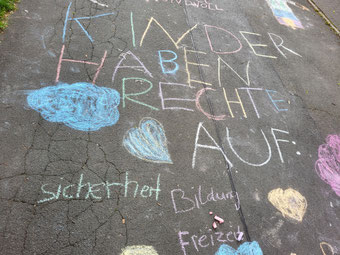 KINDER
HABEN
RECHTE
AUF:
sicherheit Bildung
Freizeit